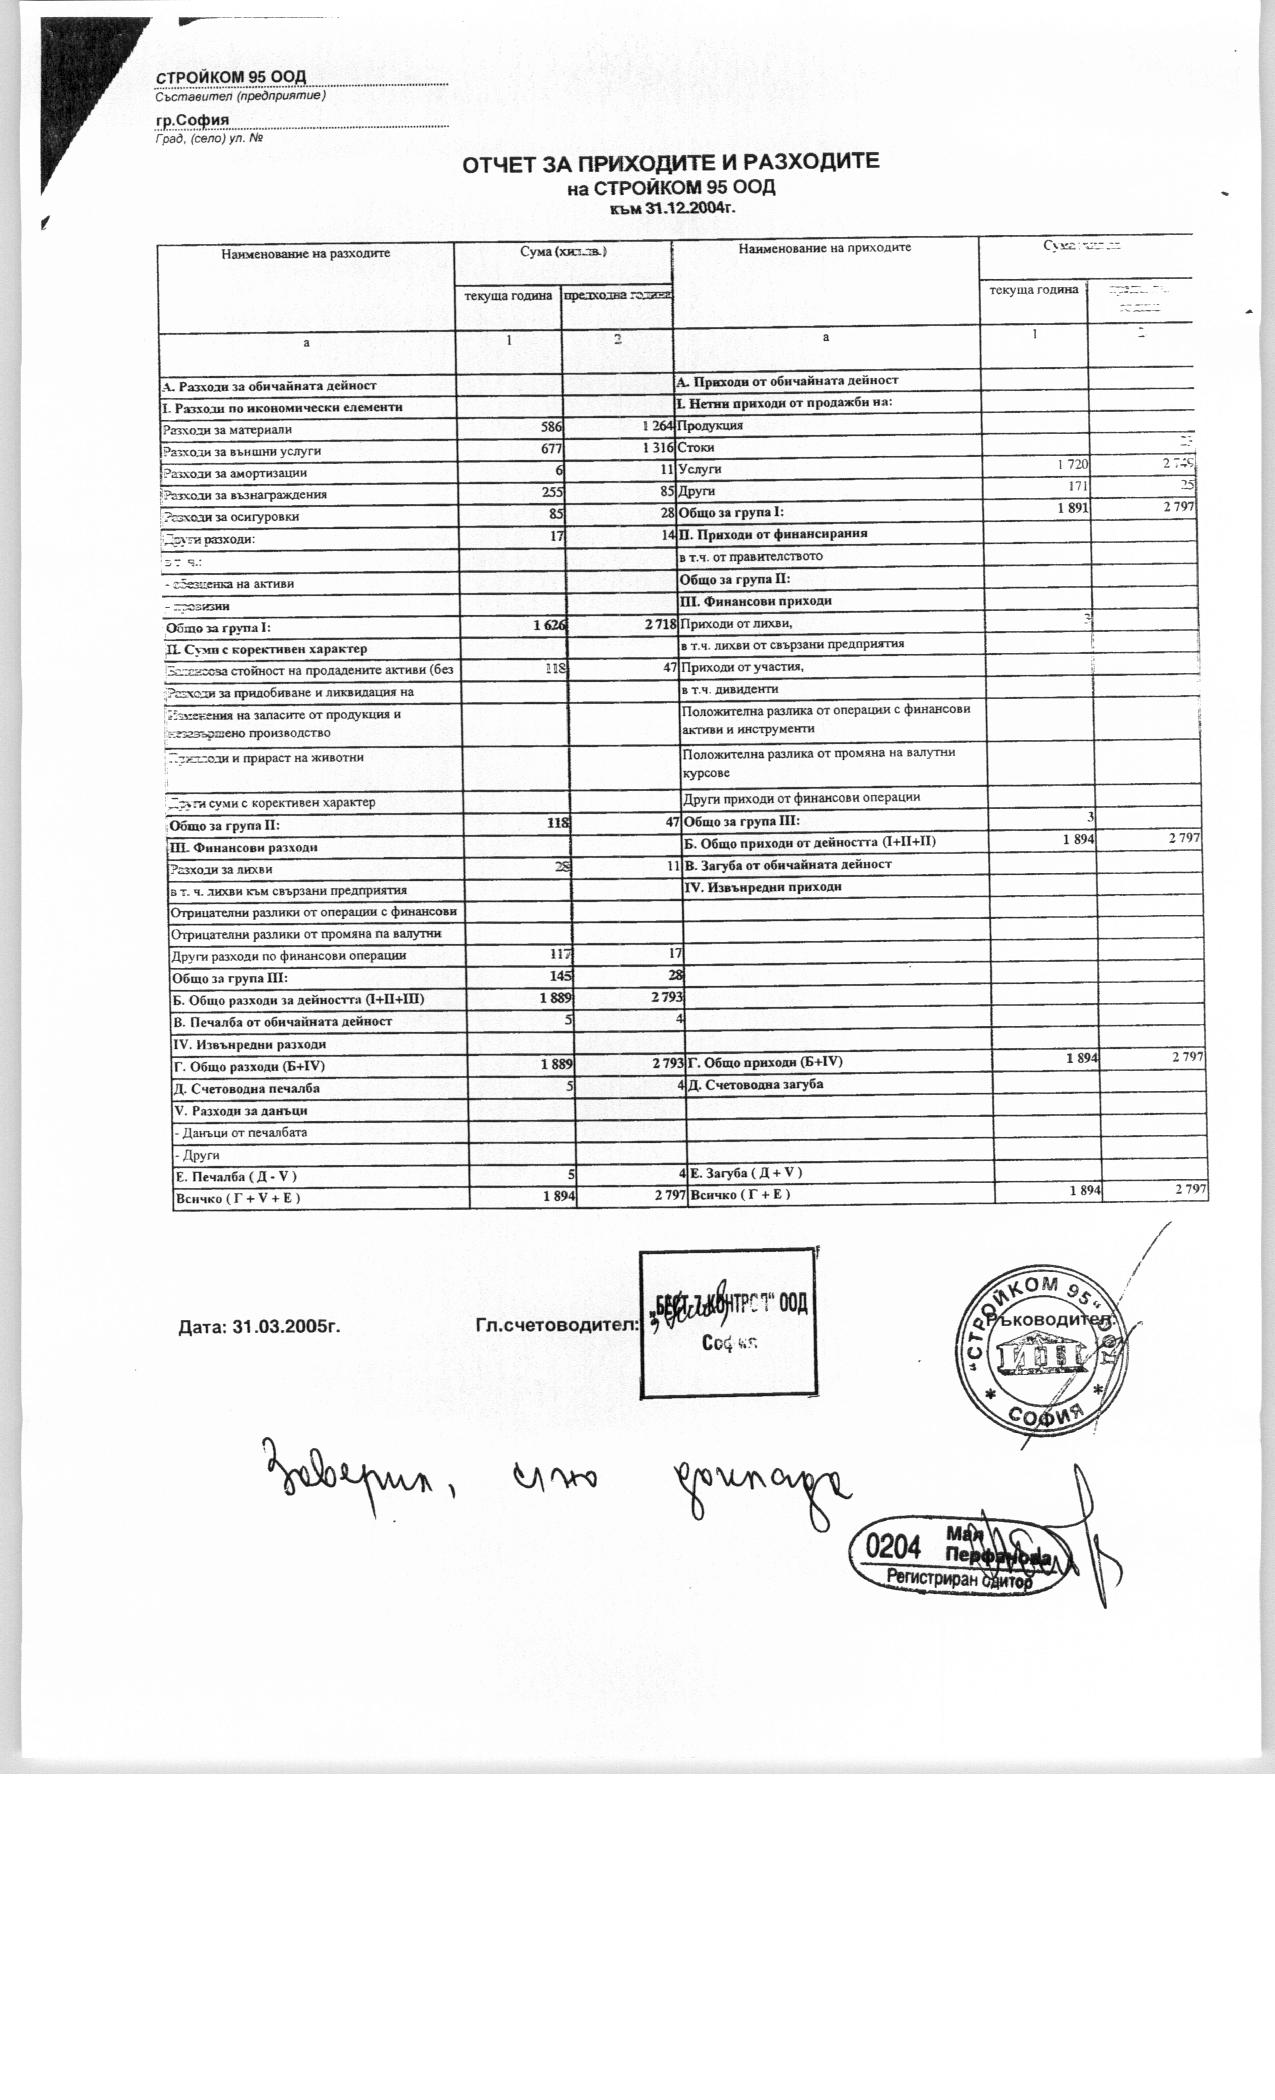 СТРОЙКОМ 95 ООД
Съставител (предприятие)
гр.София
Град, (село) ул. №
ОТЧЕТ ЗА ПРИХОДИТЕ И РАЗХОДИТЕ
на СТРОЙКОМ 95 ООД
към 31.12.2004г.
Наименование на разходите Сума (хил.лв.) Наименование на приходите Сума
текуща година предходна година текуща година
а 1 2 а 1 2
А. Разходи за обичайната дейност А. Приходи от обичайната дейност
I. Разходи по икономически елементи I. Нетни приходи от продажби на:
Разходи за материали 586 1 264 Продукция
Разходи за външни услуги 677 1 316 Стоки
Разходи за амортизации 6 11 Услуги 1 720
Разходи за възнаграждения 255 85 Други 171 25
Разходи за осигуровки 85 28 Общо за група I: 1 891 2 797
Други разходи: 17 14 II. Приходи от финансирания
в т. ч.: в т.ч. от правителството
- обезценка на активи Общо за група II:
- провизии III. Финансови приходи
Общо за група I: 1 626 2 718 Приходи от лихви, 3
II. Суми с корективен характер в т.ч. лихви от свързани предприятия
Балансова стойност на продадените активи (без 118 47 Приходи от участия,
Разходи за придобиване и ликвидация на в т.ч. дивиденти
Изменения на запасите от продукция и незавършено производство Положителна разлика от операции с финансови активи и инструменти
Приплоди и прираст на животни Положителна разлика от промяна на валутни курсове
Други суми с корективен характер Други приходи от финансови операции
Общо за група II: 118 47 Общо за група III: 3
III. Финансови разходи Б. Общо приходи от дейността (I+II+II) 1 894 2 797
Разходи за лихви 28 11 В. Загуба от обичайната дейност
в т. ч. лихви към свързани предприятия IV. Извънредни приходи
Отрицателни разлики от операции с финансови
Отрицателни разлики от промяна па валутни
Други разходи по финансови операции 117 17
Общо за група III: 145 28
Б. Общо разходи за дейността (I+II+III) 1 889 2 793
В. Печалба от обичайната дейност 5 4
IV. Извънредни разходи
Г. Общо разходи (Б+IV) 1 889 2 793 Г. Общо приходи (Б+IV) 1 894 2 797
Д. Счетоводна печалба 5 4 Д. Счетоводна загуба
V. Разходи за данъци
- Данъци от печалбата
- Други
Е. Печалба ( Д - V ) 5 4 Е. Загуба ( Д + V )
Всичко ( Г + V + Е ) 1 894 2 797 Всичко ( Г + Е ) 1 894 2 797
Дата: 31.03.2005г. Гл.счетоводител: Ръководител:
„БЕСТ-7-КОНТРОЛ“ ООД
София
"СТРОЙКОМ 95" ООД
* СОФИЯ *
Заверил, съгл доклада
0204 Мая
Перфанова
Регистриран одитор